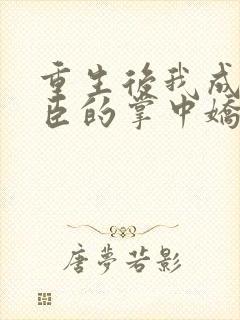 重生後我成
臣的掌中嬌
唐夢若影